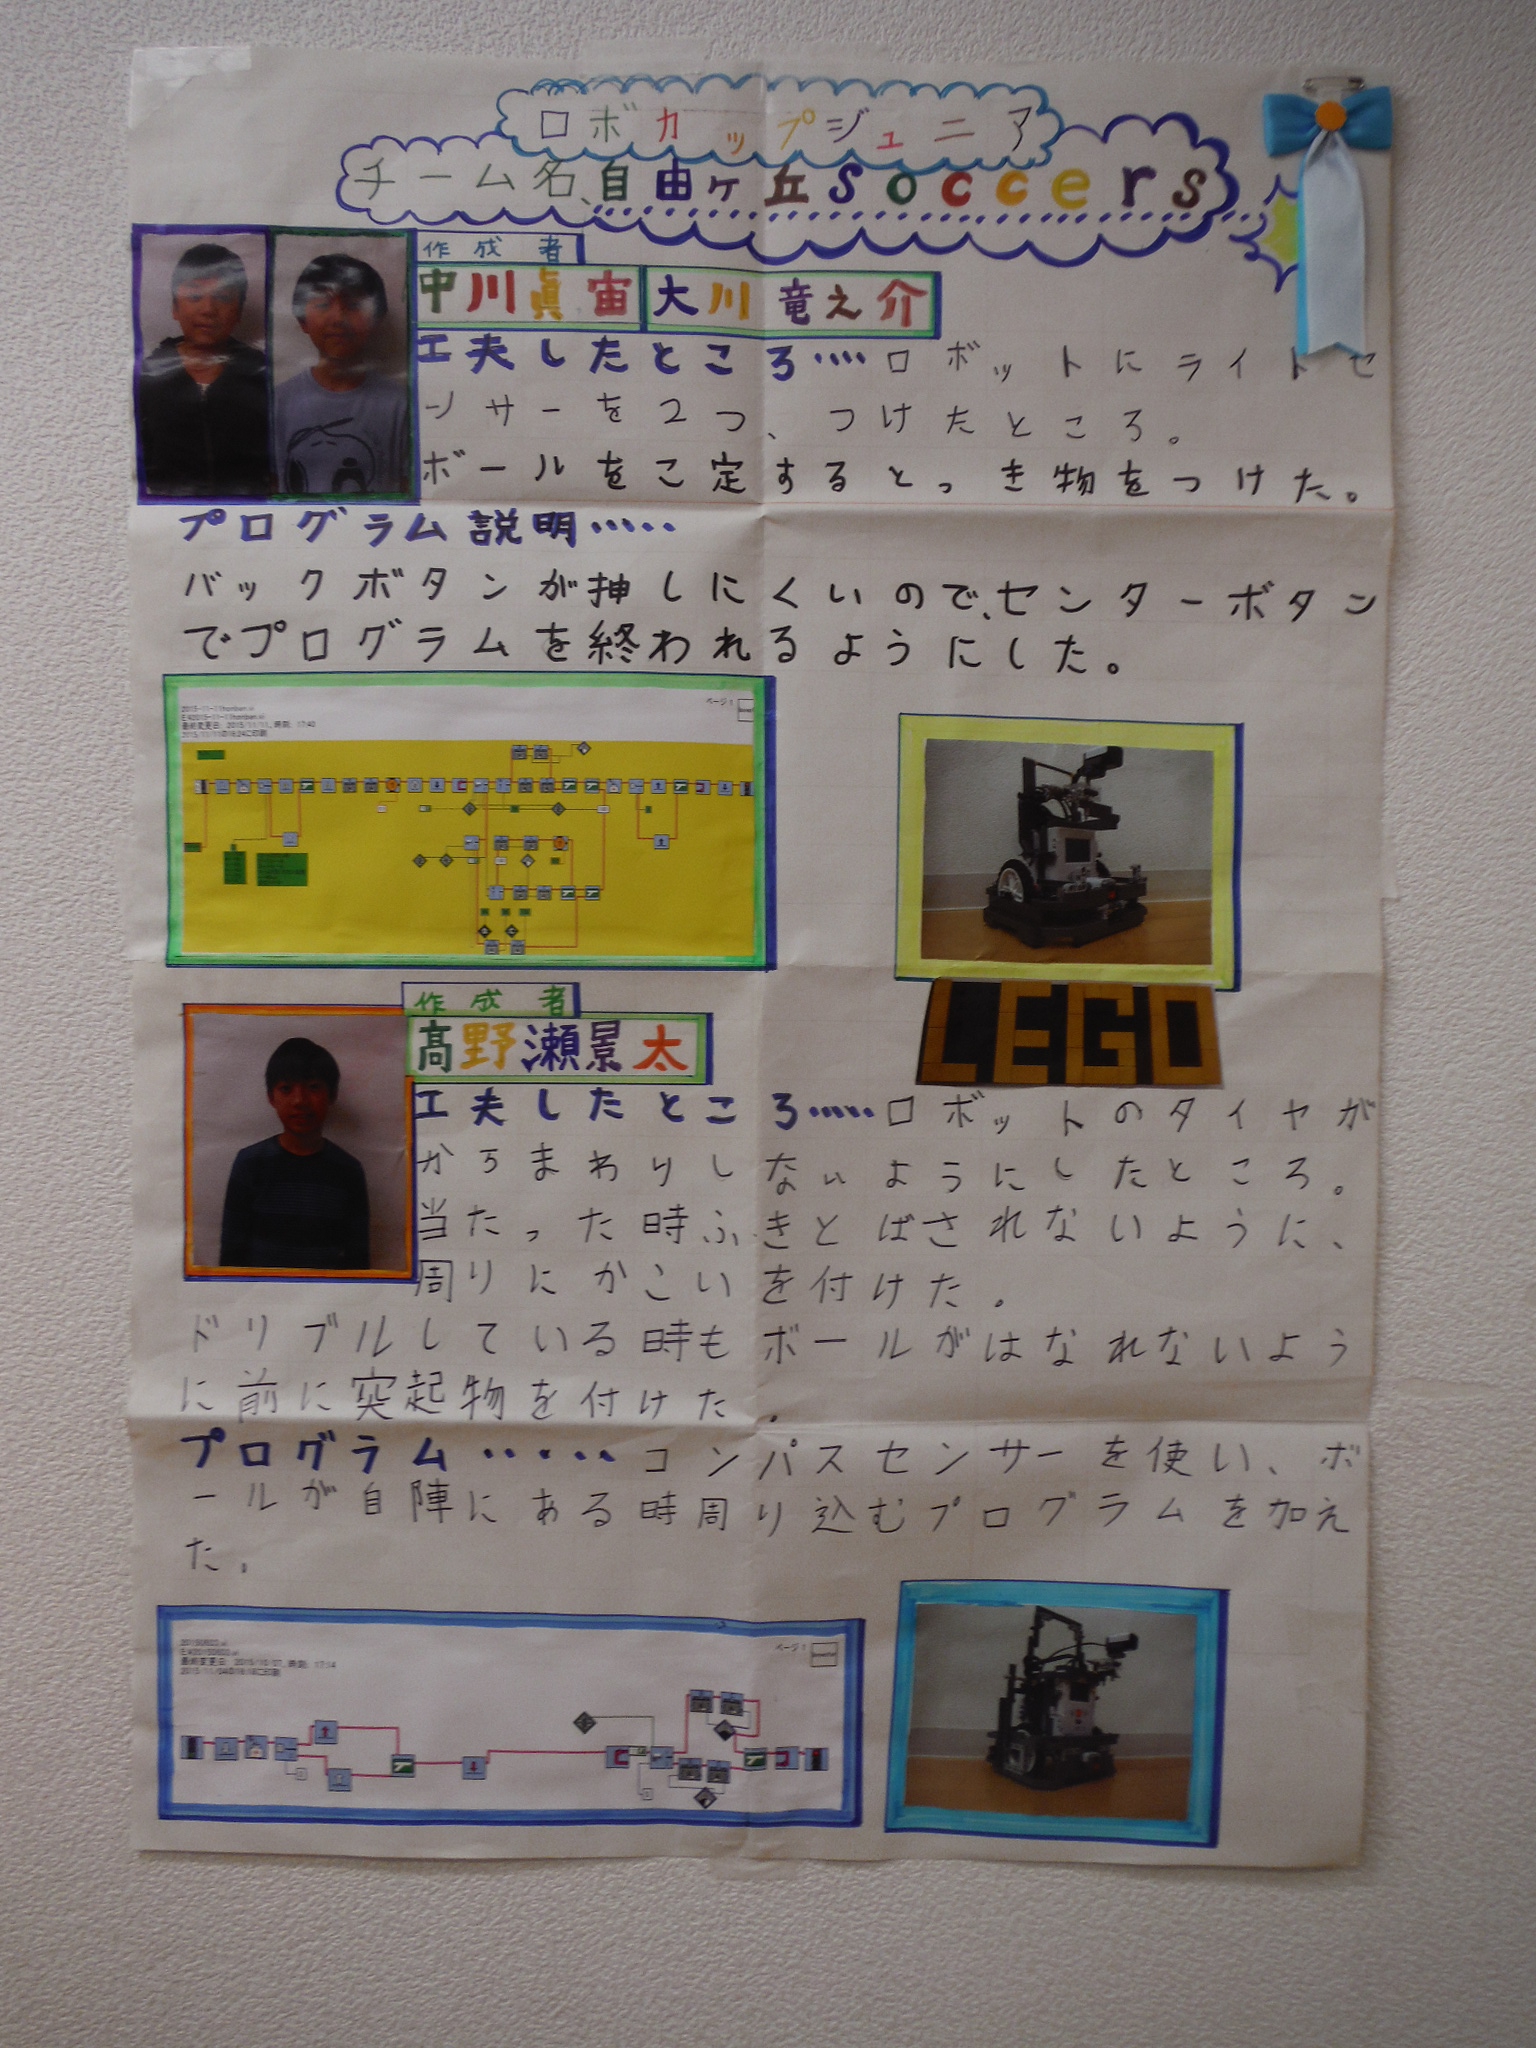 ロボカップジュニア
チーム名、自由ヶ丘soccers
作成者
中川眞宙 大川竜之介
工夫したところ‥‥ロボットにライトセ
ンサーを2つ、つけたところ。
ボールをこ定するとっき物をつけた。
プログラム説明‥‥‥
バックボタンが押しにくいので、センターボタン
でプログラムを終われるようにした。
ページ 1
最終変更日: 2015/11/11, 時刻: 17:40
作成者
髙野瀬景太
LEGO
工夫したところ‥‥‥ロボットのタイヤが
からまわりしないようにしたところ。
当たった時ふきとばされないように、
周りにかこいを付けた。
ドリブルしている時もボールがはなれないよう
に前に突起物を付けた。
プログラム‥‥‥コンパスセンサーを使い、ボ
ールが自陣にある時周り込むプログラムを加え
た。
ページ 1
最終変更日: 2015/10/07, 時刻: 17:14